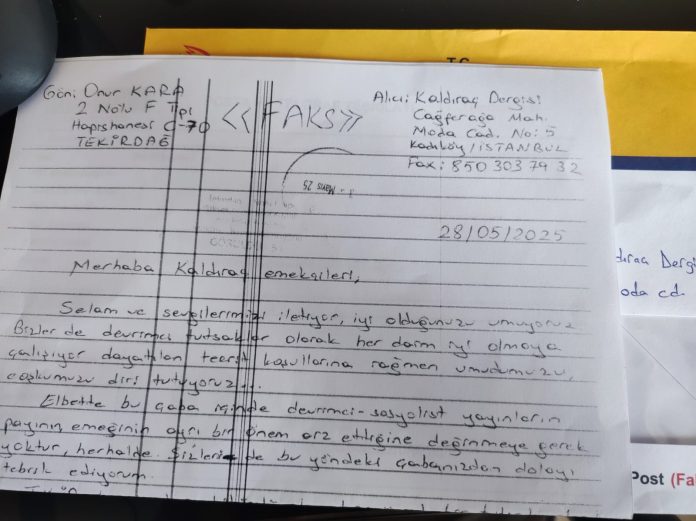 Gön: Onur KARA
2 Nolu F Tipi
Hapishanesi C-70
TEKİRDAĞ
<<FAKS>>
Alıcı: Kaldıraç Dergisi
Caferağa Mah.
Moda Cad. No: 5
Kadıköy / İSTANBUL
Fax: 850 303 79 32
Mayıs 25
28/05/2025
Merhaba Kaldıraç emekçileri,
Selam ve sevgilerimizi iletiyor, iyi olduğunuzu umuyoruz
Bizler de devrimci tutsaklar olarak her daim iyi olmaya
çalışıyor dayatılan tecrit koşullarına rağmen umudumuzu,
coşkumuzu diri tutuyoruz...
Elbette bu çaba içinde devrimci-sosyalist yayınların
payının, emeğinin ayrı bir önem arz ettiğine değinmeye gerek
yoktur, herhalde. Sizleri de bu yöndeki çabanızdan dolayı
tebrik ediyorum.
T.C.
Dergi
oda cd.
Post (Fa